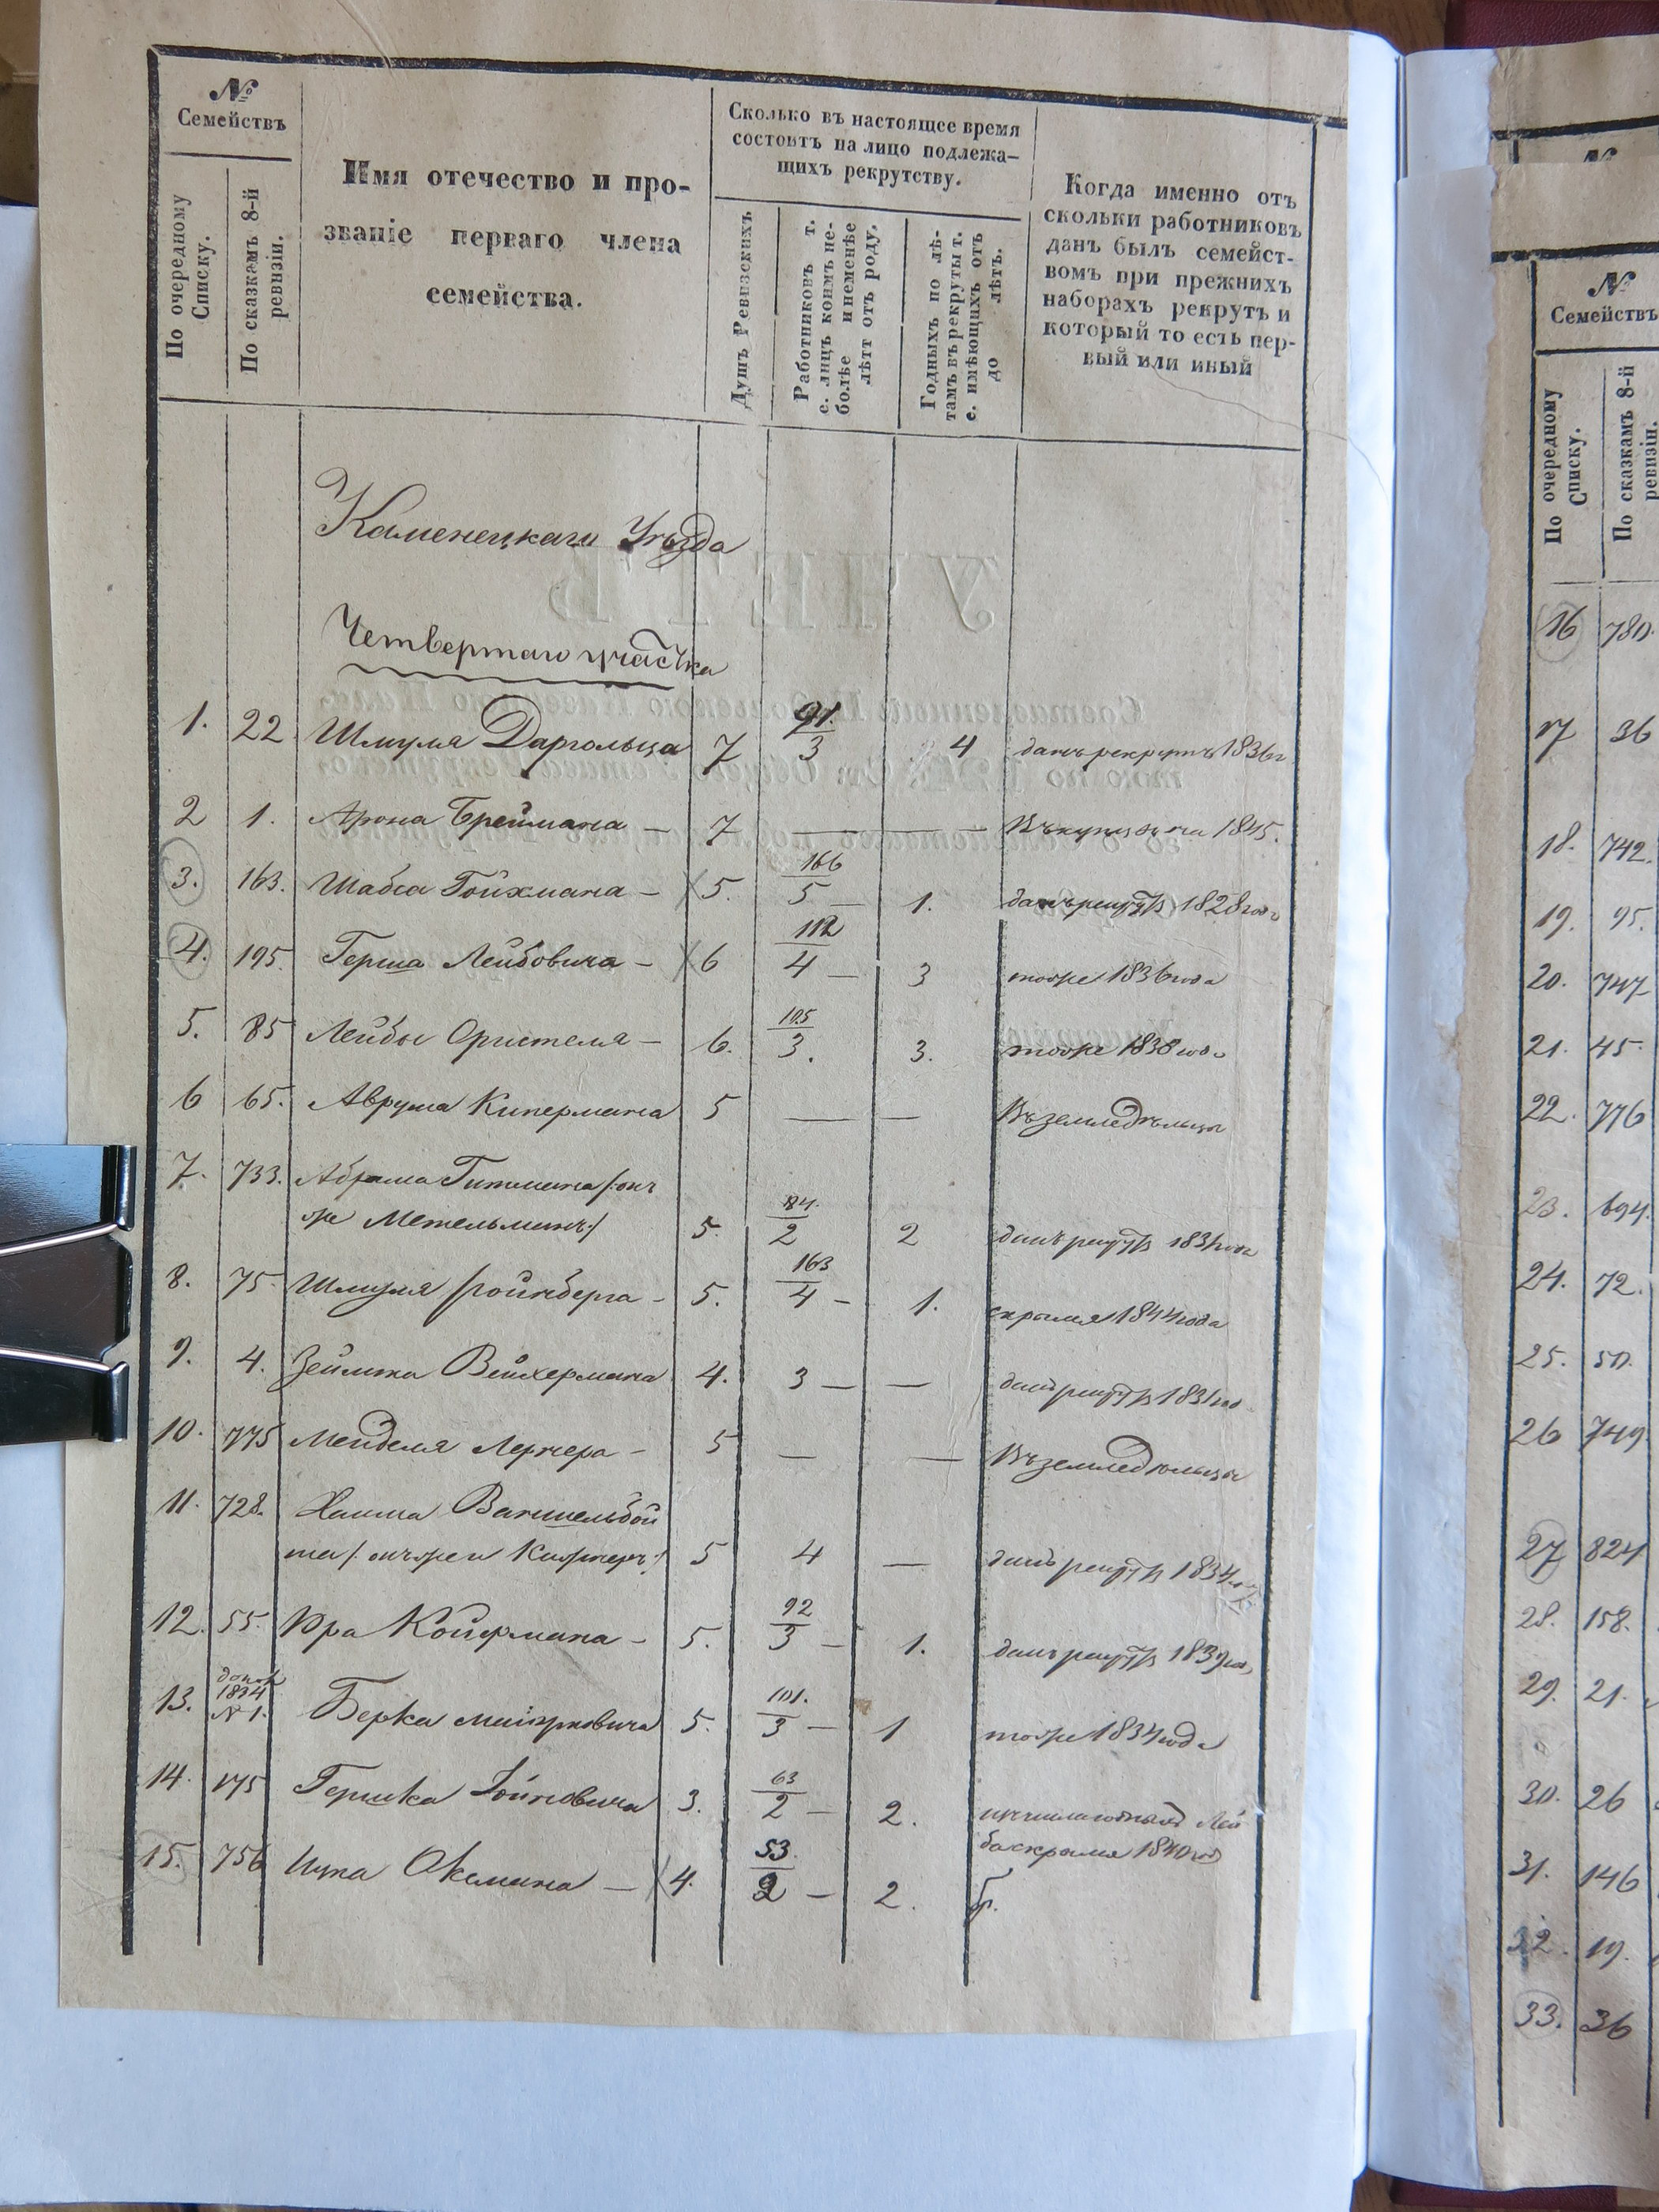 №
Семействъ
По очередному
Списку.
По сказкамъ 8-й
ревизіи.
Имя отечество и про-
званіе перваго члена
семейства.
Сколько въ настоящее время
состоитъ на лицо подлежа-
щихъ рекрутству.
Душъ Ревизскихъ
Работниковъ т.
е. лицъ коимъ не-
болѣе и неменѣе
лѣтт отъ роду.
Годныхъ по лѣ-
тамъ въ рекруты т.
е. имѣющихъ отъ
до лѣтъ.
Когда именно отъ
скольки работниковъ
данъ былъ семейст-
вомъ при прежнихъ
наборахъ рекрутъ и
который то есть пер-
вый или иный
Каменецкаго Уѣзда
Четвертаго участка
1. 22 Шмуля 7 91. 3 4 данъ рекрутъ 1836 г
2 1. Арона Бреймана — 7 — — Въ купцы на 1845.
3. 163. Шабса Гойхмана — 5. 166 5 — 1. данъ рекрутъ 1828 года
4. 195. Герша Лейбовича — 6 112 4 — 3 тоже 1836 года
5. 85 Лейбы Ористеля — 6. 105 3. 3. тоже 1838 года
6 65. Аврума Кипермана 5 — — Въ земледѣльцы
7. 733. Абрама Гитмана /: онъ
же Метельманъ :/ 5. 84. 2 2 данъ рекрутъ 1831 года
8. 75. Шмуля Гройнберга — 5. 163 4 — 1. 1844 года
9. 4. Зейлика Вейхермана 4. 3 — — данъ рекрутъ 1831 год
10. 775 Менделя Лернера — 5 — — Въ земледѣльцы
11. 728. Хаима Ваншельбой
ма /: онъ же и :/ 5 4 — данъ рекрутъ 1834
12. 55. Сра Койфмана — 5. 92 3 — 1. данъ рекрутъ 1839 год
13. допол 1834 № 1. Берка 5. 101. 3 — 1 тоже 1834 года
14. 175 Гершка Зойновича 3. 63 2 — 2. Лей
ба 1840 год
15. 756 Ицка Оксмана — 4. 53. 2 — 2.
№
№
Семействъ
По очередному
Списку.
По сказкамъ 8-й
ревизіи.
16 780.
17 36
18. 742.
19. 95.
20. 747
21. 45.
22. 776
23. 694.
24. 72.
25. 50.
26 749.
27 824
28. 158.
29. 21.
30. 26
31. 146
32. 19.
33. 36